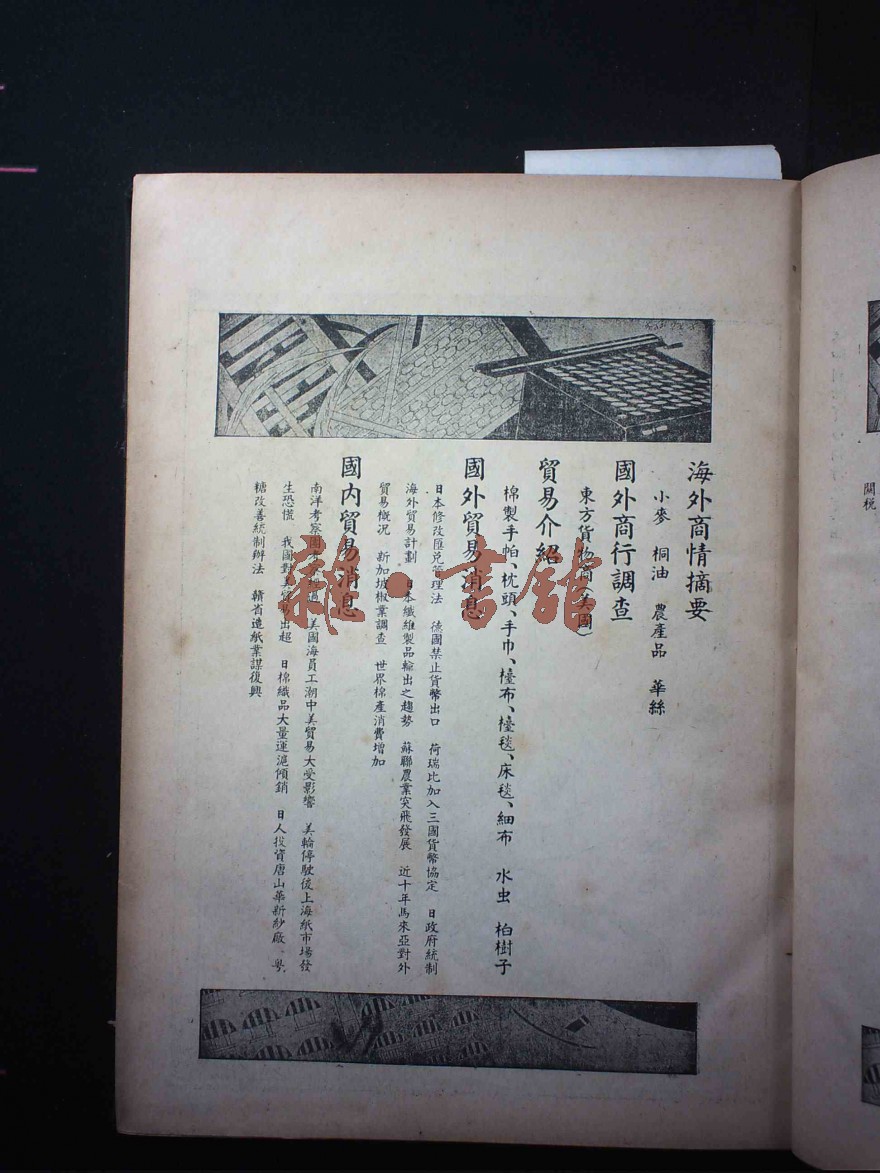 海外商情摘要
小麥　桐油　農產品　華絲
國外商行調查
東方貨物商(美國)
貿易介紹
棉製手帕、枕頭、手巾、檯布、檯毯、床毯、細布　水虫　柏樹子
國外貿易消息
日本修改匯兌管理法　德國禁止貨幣出口　荷瑞比加入三國貨幣協定　日政府統制
海外貿易計劃　日本纖維製品輸出之趨勢　蘇聯農業突飛發展　近十年馬來亞對外
貿易概况　新加坡椒業調查　世界棉產消費增加
國內貿易消息
南洋考察團考察經過　美國海員工潮中美貿易大受影響　美輪停駛後上海紙市場發
生恐慌　我國對美貿易出超　日棉織品大量運滬傾銷　日人投資唐山華新紗廠　粵
糖改善統制辦法　贛省造紙業謀復興
關稅
雜·書館